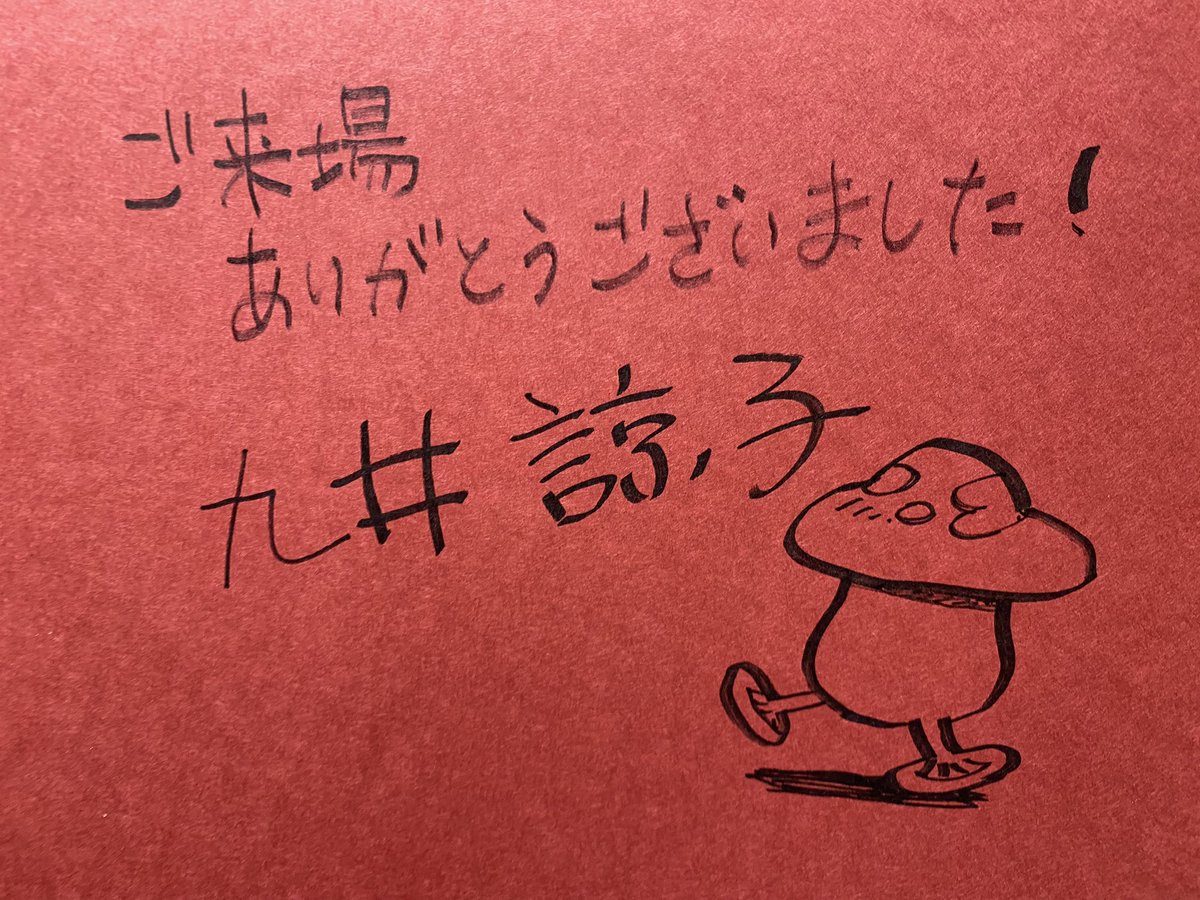 ご来場
ありがとうございました!
九井諒子